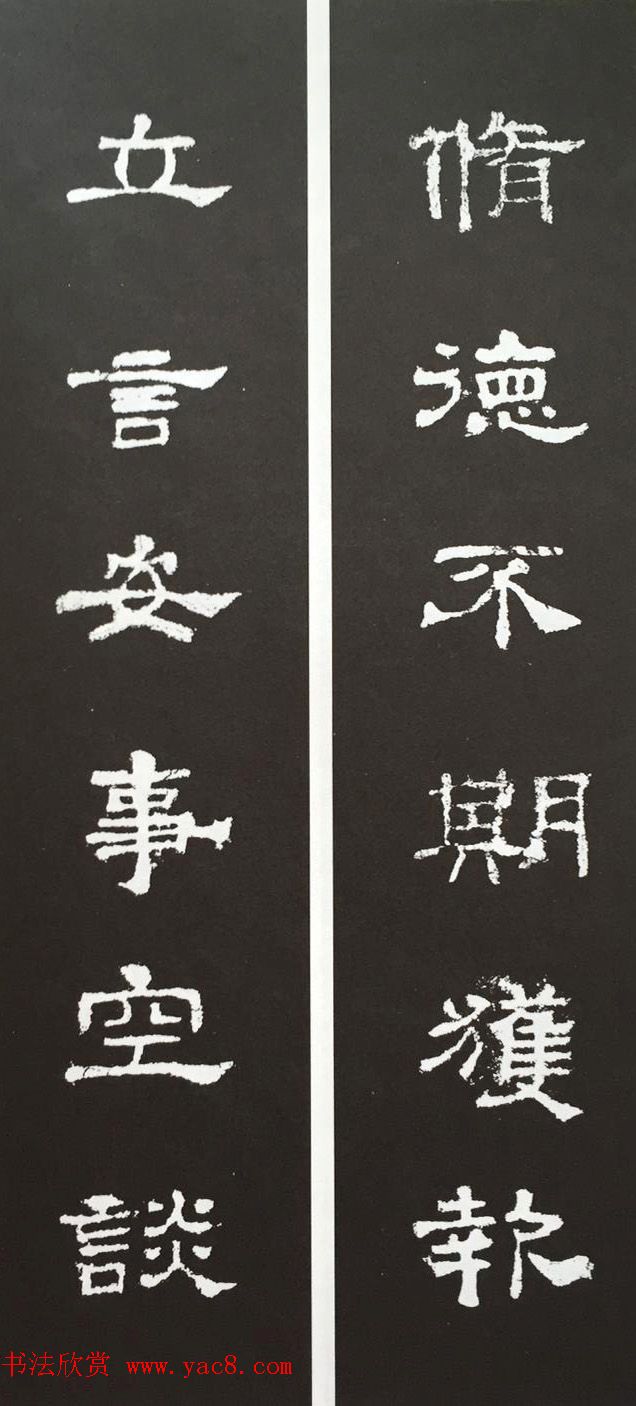 脩德不期獲報
立言安事空談
书法欣赏 www.yac8.com